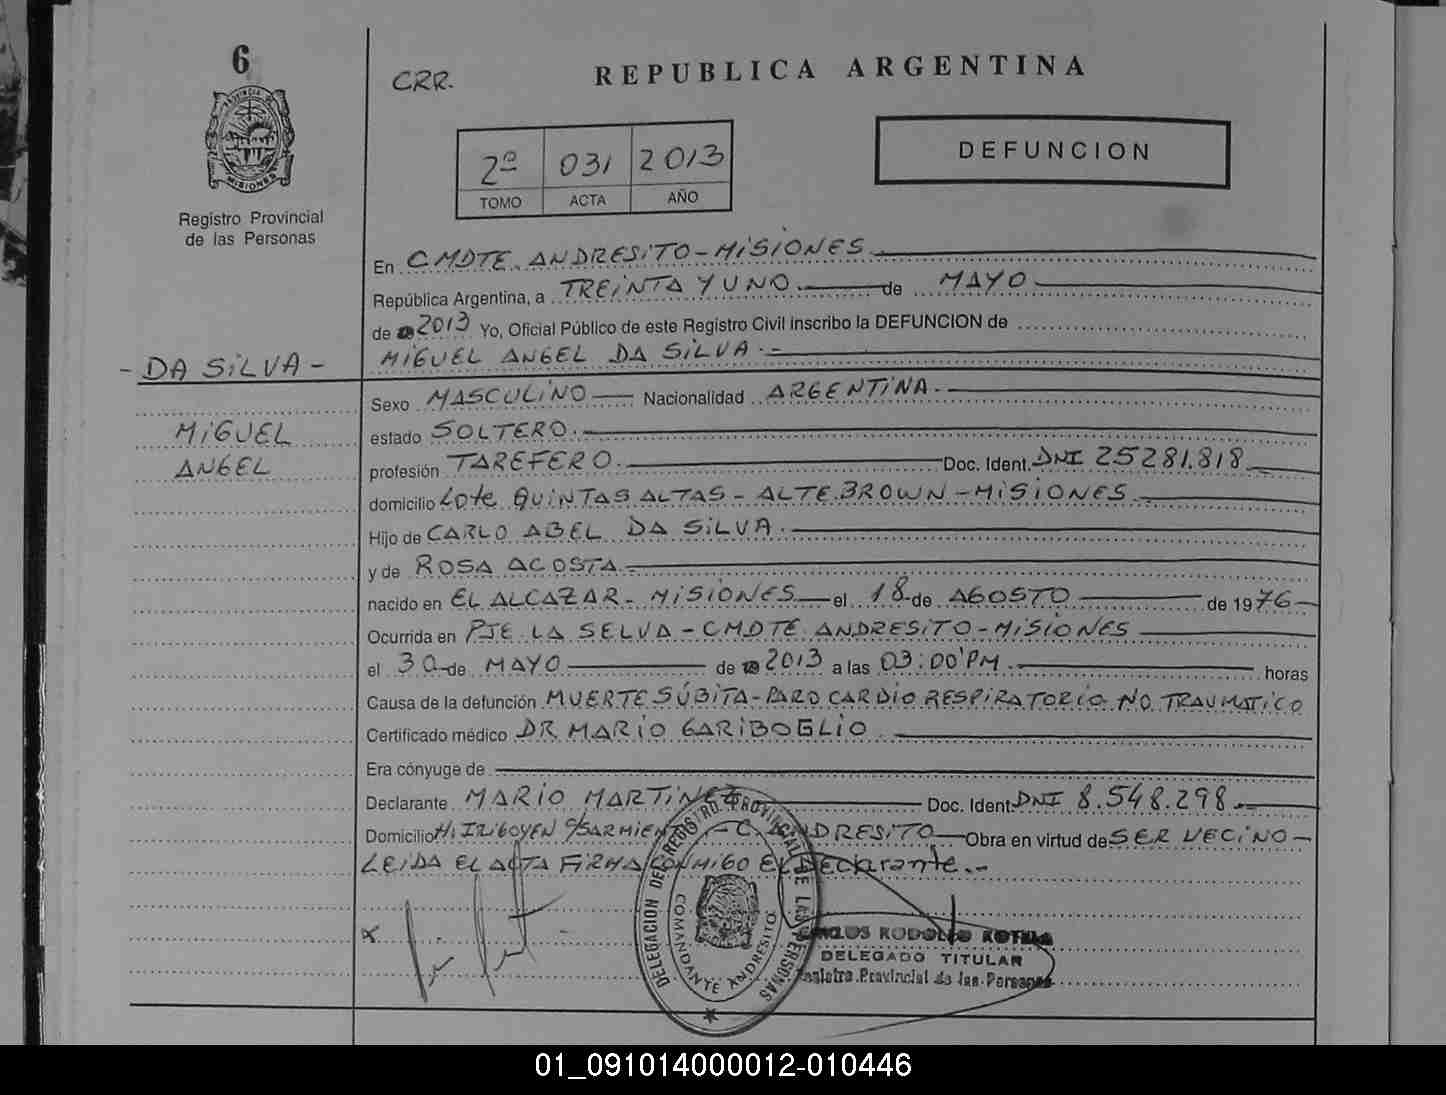 6
CRR.
REPUBLICA ARGENTINA
PROVINCIA DE MISIONES
Registro Provincial
de las Personas
2º 031 2013
TOMO ACTA AÑO
DEFUNCION
En CMDTE. ANDRESITO - MISIONES
República Argentina, a TREINTA Y UNO. de MAYO
de 2013 Yo, Oficial Público de este Registro Civil inscribo la DEFUNCION de
MIGUEL ANGEL DA SILVA.-
- DA SILVA -
MIGUEL
ANGEL
Sexo MASCULINO Nacionalidad ARGENTINA.
estado SOLTERO.
profesión TAREFERO. Doc. Ident. DNI 25281.818
domicilio Lote QUINTAS ALTAS - ALTE. BROWN - MISIONES
Hijo de CARLO ABEL DA SILVA.
y de ROSA ACOSTA.
nacido en EL ALCAZAR - MISIONES el 18 de AGOSTO de 1976
Ocurrida en PJE LA SELVA - CMDTE ANDRESITO - MISIONES
el 30 de MAYO de 2013 a las 03:00'PM. horas
Causa de la defunción MUERTE SÚBITA - PARO CARDIO RESPIRATORIO NO TRAUMATICO
Certificado médico DR MARIO GARIBOGLIO
Era cónyuge de
Declarante MARIO MARTINEZ Doc. Ident. DNI 8.548.298.
Domicilio H. IRIGOYEN S/SARMIENTO - C. ANDRESITO Obra en virtud de SER VECINO -
LEIDA EL ACTA FIRMA CONMIGO EL DEClarante.-
x
DELEGACION DEL REGISTRO PROVINCIAL DE LAS PERSONAS
COMANDANTE ANDRESITO
CARLOS RODOLFO
DELEGADO TITULAR
Registro Provincial de las Personas
01_091014000012-010446